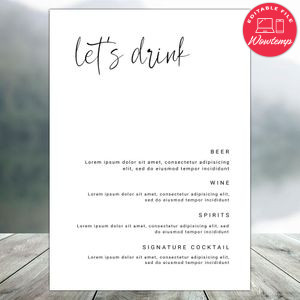 EDITABLE FILE
Wowtemp
let's drink
BEER
Lorem ipsum dolor sit amet, consectetur adipisicing
elit, sed do eiusmod tempor incididunt
WINE
Lorem ipsum dolor sit amet, consectetur adipisicing
elit, sed do eiusmod tempor incididunt
SPIRITS
Lorem ipsum dolor sit amet, consectetur adipisicing
elit, sed do eiusmod tempor incididunt
SIGNATURE COCKTAIL
Lorem ipsum dolor sit amet, consectetur adipisicing
elit, sed do eiusmod tempor incididunt